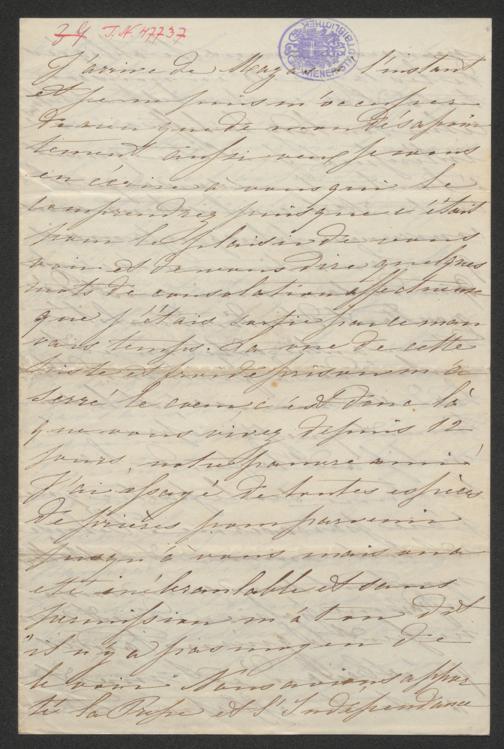 J. N. 47737
WIENER STADTBIBLIOTHEK
J'arrive de Mazas à l'instant
et je ne puis m'occuper
de rien que de mon désapoin
tement aussi veux je vous
en écrire à vous qui le
comprendrez puisque c'était
pour le plaisir de vous
voir et de vous dire quelques
mots de consolation affectueuse
que j'étais sortie par ce mau
vais temps. La vue de cette
triste et froide prison m'a
serré le coeur c'est donc là
que vous vivez depuis 12
jours, notre pauvre ami!
J'ai essayé de toutes espèces
de prières pour parvenir
jusqu'à vous mais on a
été inébranlable et sans
permission m'a t'on dit
"il n'y a pas moyen de
le voir. Nous avions appor
té la Presse et l'Indépendance